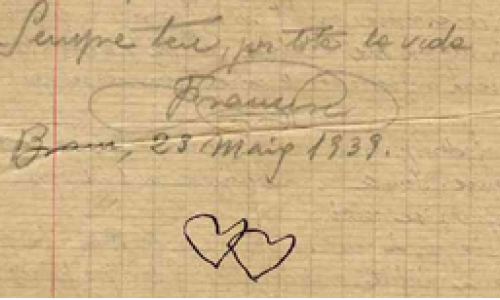 Sempre teu, per tota la vida
Francesc
Bram, 23 Maig 1939.